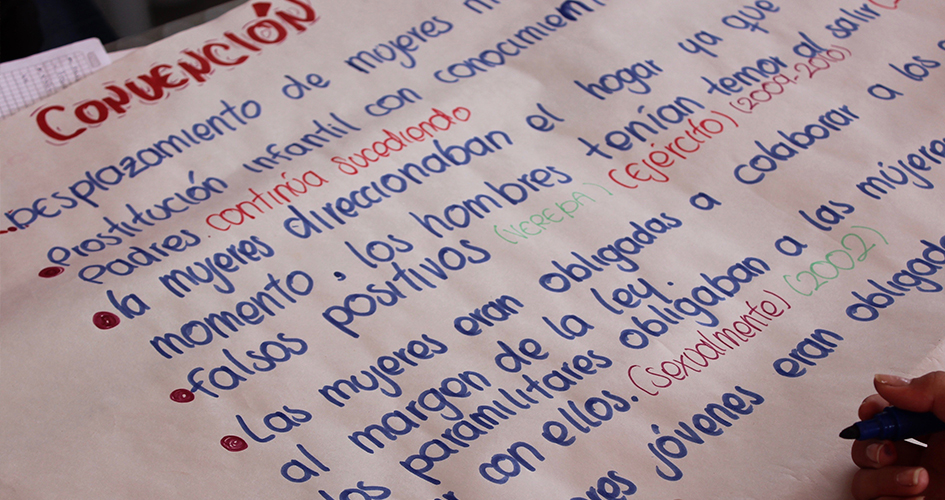 CONVENCIÓN
...Desplazamiento de mujeres
Prostitución infantil con conocimien
Padres. continúa sucediendo
la mujeres direccionaban el hogar ya que
momento, los hombres tenían temor al salir
falsos positivos (VEREDA) (Ejército) (2009-2010)
Las mujeres eran obligadas a colaborar a los
al margen de la ley.
los paramilitares obligaban a las mujeres
con ellos. (sexualmente) (2002)
res jóvenes eran obligad